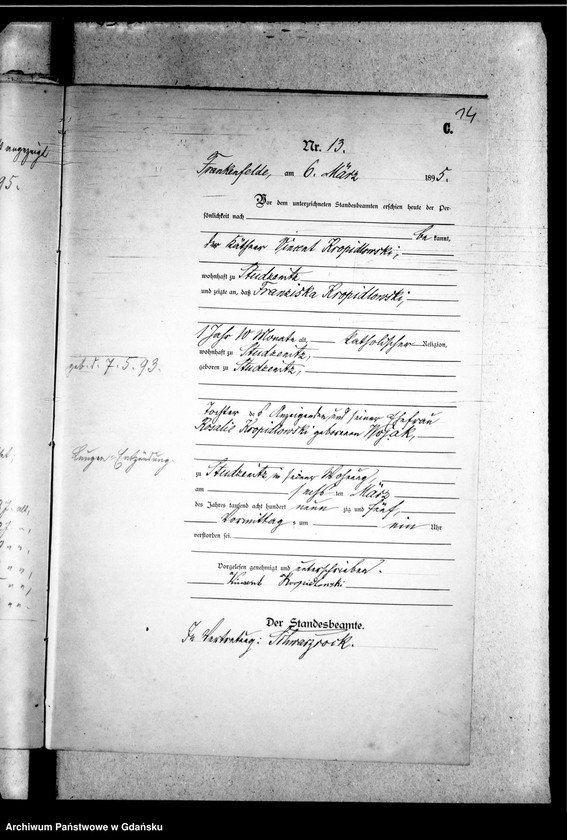 14
C.
Nr. 13.
Frankenfelde, am 6. März 1895.
Vor dem unterzeichneten Standesbeamten erschien heute der Per-
sönlichkeit nach
be kannt,
der Käthner Vincent Kropidlowski,
wohnhaft zu Studzenitz
und zeigte an, daß Franziska Kropidlowski,
1 Jahr 10 Monate alt, katholischer Religion,
wohnhaft zu Studzenitz,
geb. d. 7.5.93.
geboren zu Studzenitz,
Tochter des Anzeigenden und seiner Ehefrau
Rosalie Kropidlowski geborenen
Lungen-Entzündung.
zu Studzenitz in seiner Wohnung,
am sechsten März
des Jahres tausend acht hundert neun zig und fünf,
Vormittags um ein Uhr
verstorben sei.
Vorgelesen genehmigt und unterschrieben.
Vincent Kropidlowski
Der Standesbeamte.
In Vertretung:
angezeigt
95.
Archiwum Państwowe w Gdańsku